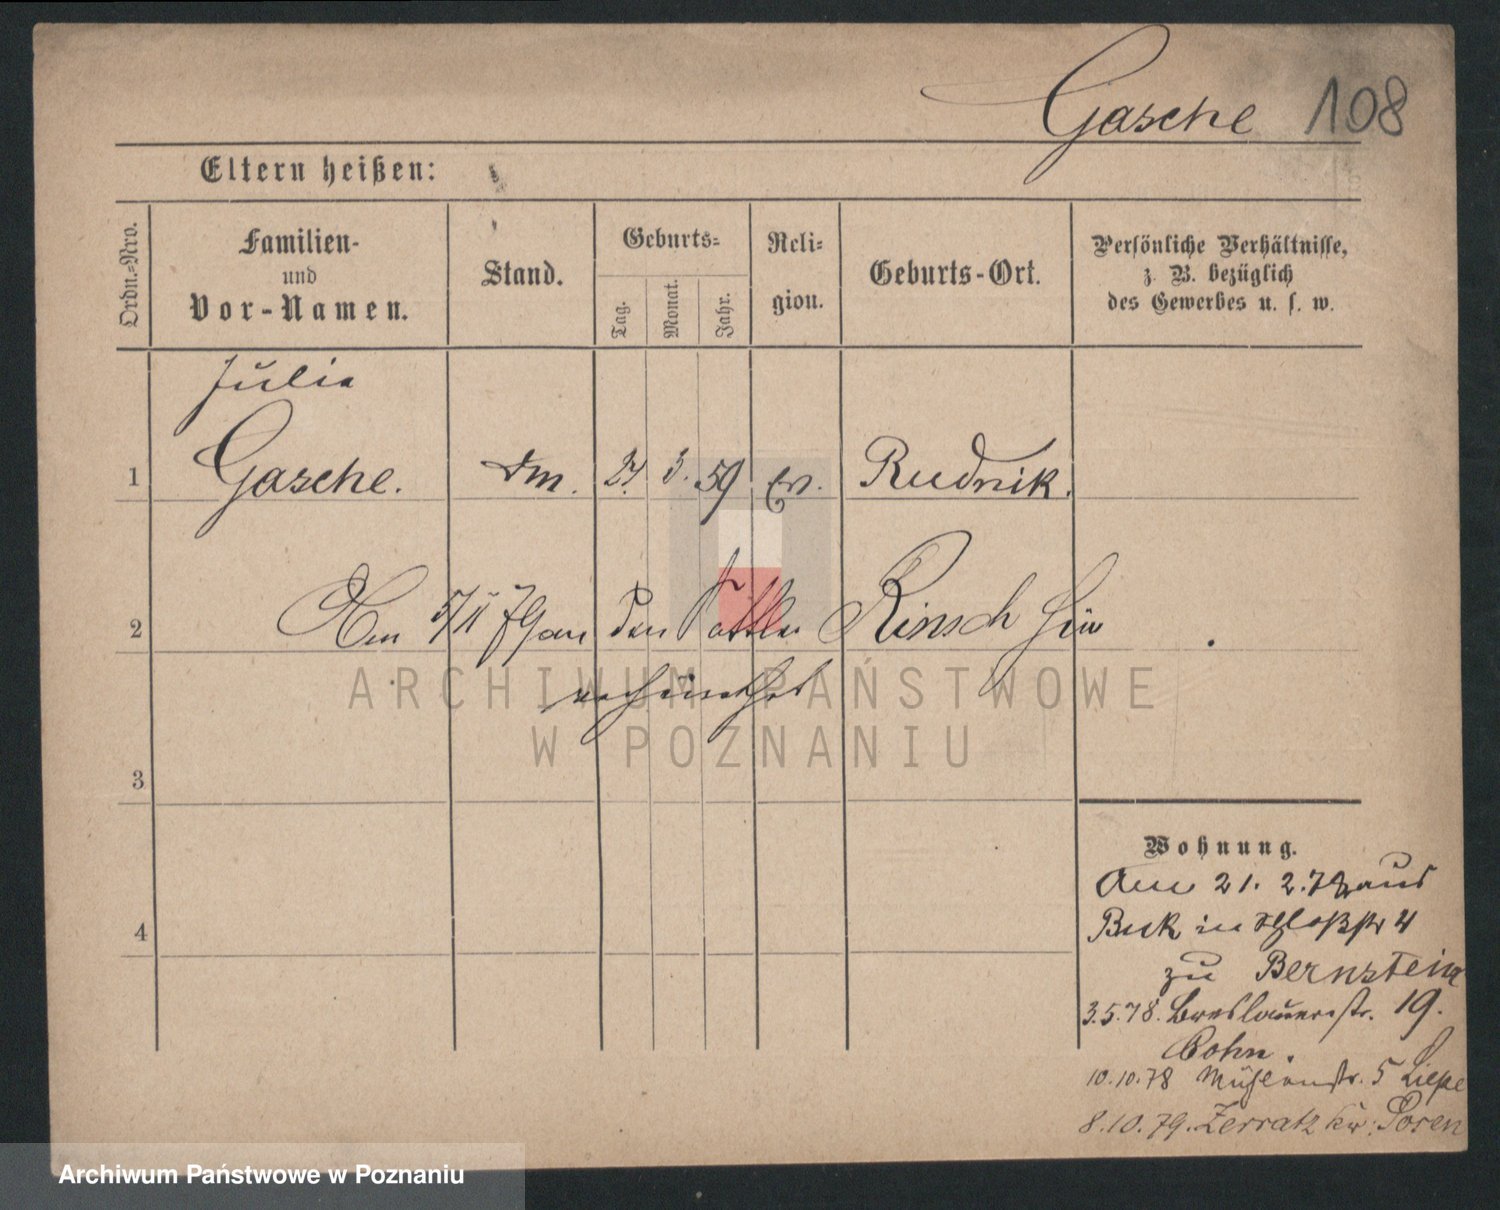 Gasche 108
Eltern heißen:
Ordn.-Nro.
Familien-
und
Vor-Namen.
Stand.
Geburts-
Tag.
Monat.
Jahr.
Reli-
gion.
Geburts-Ort.
Persönliche Verhältnisse,
z. B. bezüglich
des Gewerbes u. s. w.
Julie
1 Gasche. Dm. 3. 59 Ev. Rudnik.
2 Am den Rinsch hier
verheirathet
ARCHIWUM PAŃSTWOWE
W POZNANIU
3
4
Wohnung.
Am 21. 2. 78 aus
Buk in Schloßstr 4
zu Bernstein
3.5.78. Breslauerstr. 19.
Cohn.
10.10.78 Mühlenstr. 5 Liepe
8.10.79. Zerratz Kr. Posen
Archiwum Państwowe w Poznaniu